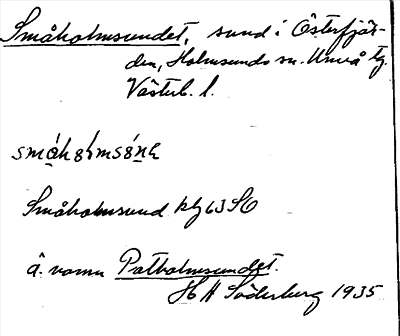 Småholmsundet, sund i Österfjär-
den, Holmsunds sn. Umeå tg.
Västerb. l.
Småholmsund klg 63 SO
å. namn Patholmsundet.
H A Söderberg 1935